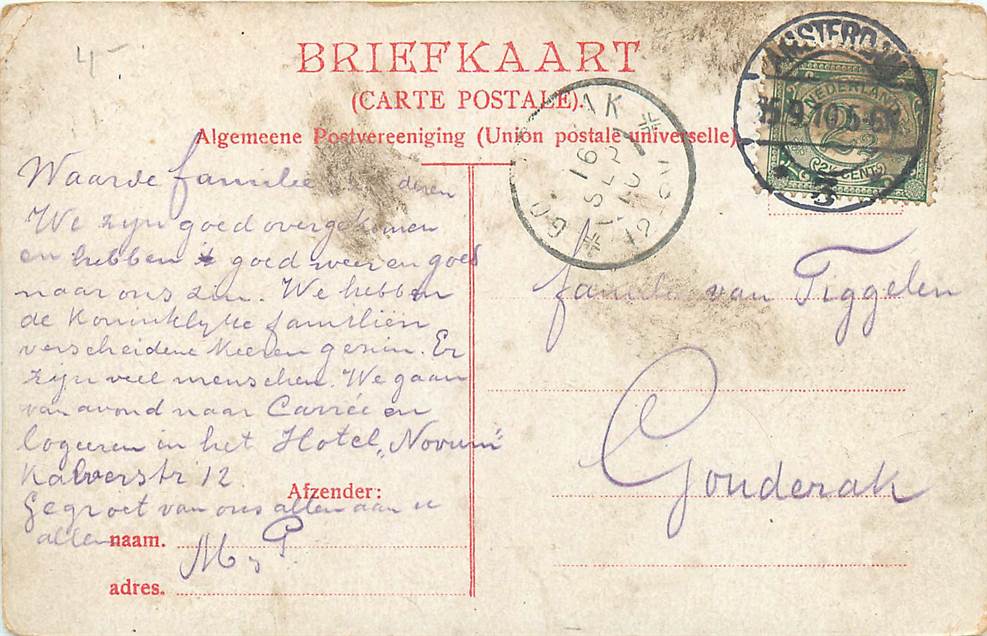 45
BRIEFKAART
(CARTE POSTALE).
Algemeene Postvereeniging (Union postale universelle)
AMSTERDAM
3
NEDERLAND
2½
(2½ CENT)
16 SEP
Waarde familie
We zijn goed overgekomen
en hebben goed weer en goed
naar ons zin. We hebben
de Koninklijke familiën
verscheidene keeren gezin. Er
zijn veel menschen. We gaan
van avond naar Carrée en
logeeren in het Hotel „Novum"
Kalverstr 12
Gegroet van ons allen aan u
allen
Afzender:
naam.
adres.
familie van Tiggelen
Gouderak